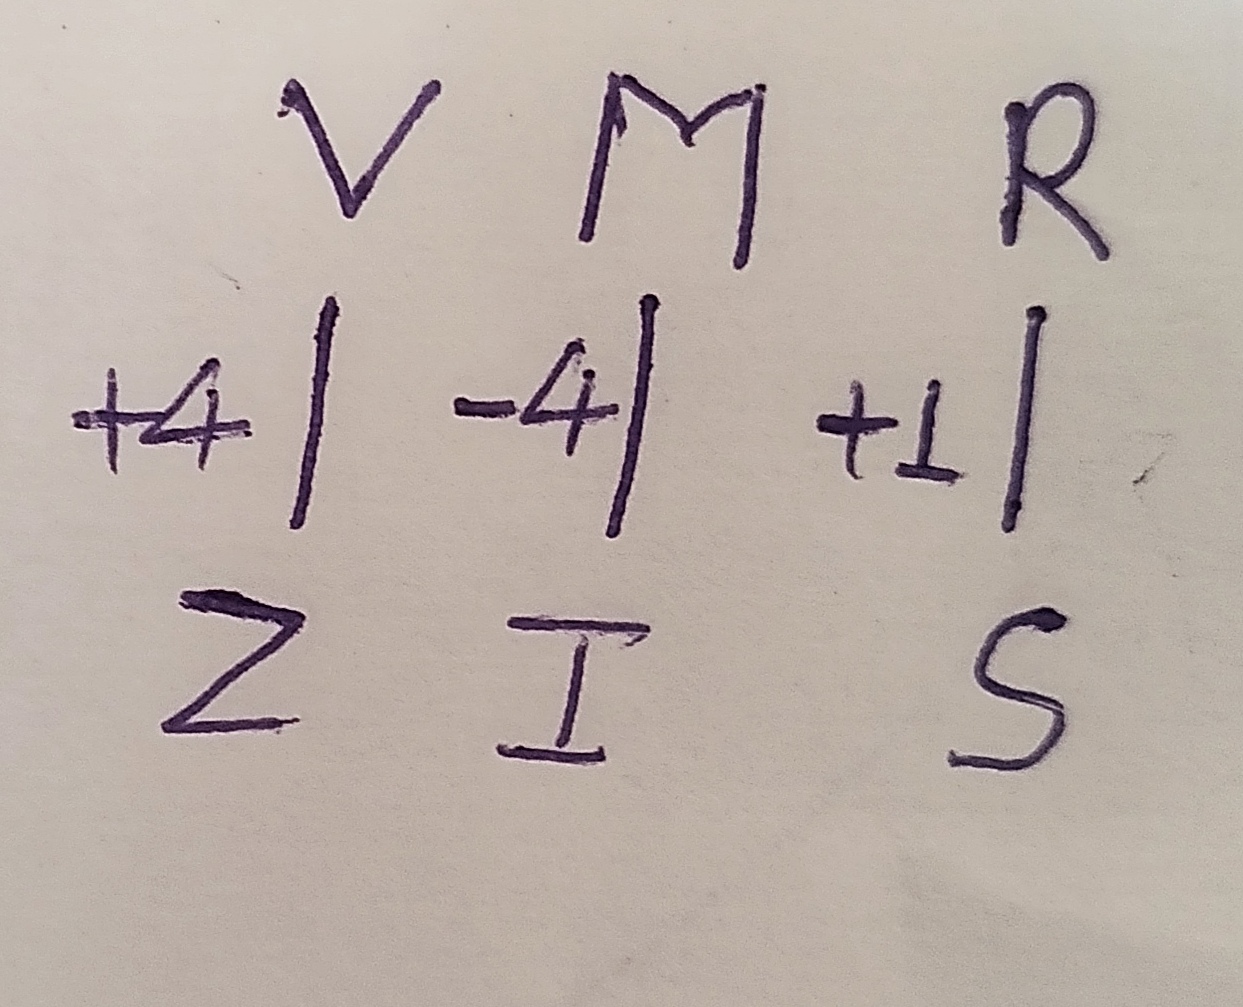 V M R
+4| -4| +1|
Z I S